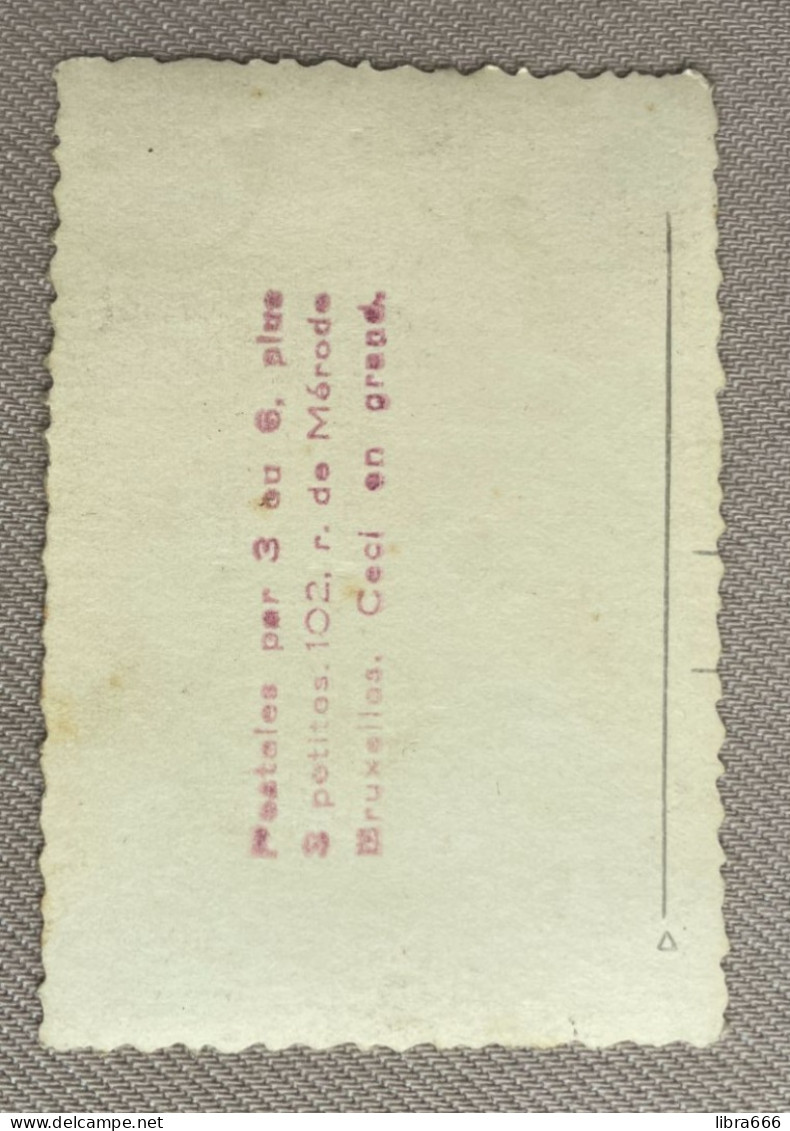 Postales par 3 ou 6, plus
3 petites. 102, r. de Mérode
Bruxelles. Ceci en grand.
libra666